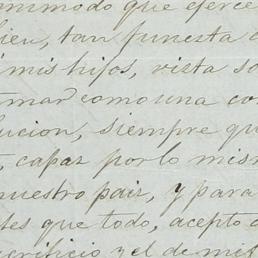 que ejerce
bien, tan funesta
mis hijos, vista
tomar como una
lucion, siempre qu
capaz por lo mism
nuestro pais, y para
tes que todo, acepto
crificio y el de mis